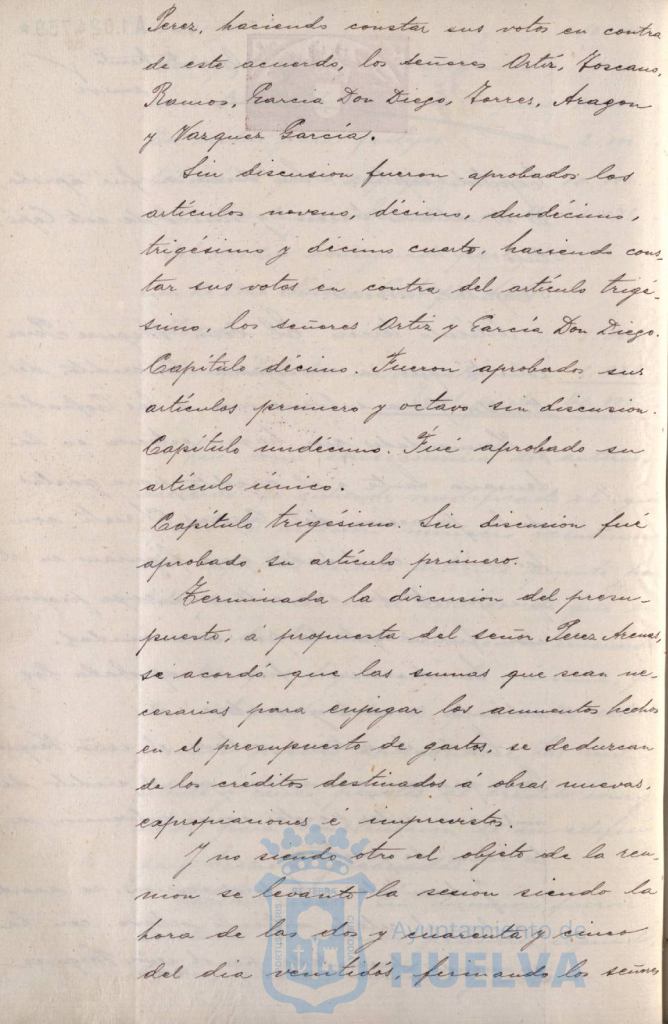 Perez, haciendo constar sus votos en contra
de este acuerdo, los señores Ortiz, Toscano,
Ramos, Garcia Don Diego, Torres, Aragon
y Vazquez García.
Sin discusion fueron aprobados los
artículos noveno, décimo, duodécimo,
trigésimo y décimo cuarto, haciendo cons-
tar sus votos en contra del artículo trigé-
simo, los señores Ortiz y García Don Diego.
Capítulo décimo. Fueron aprobados sus
artículos primero y octavo sin discusion.
Capítulo undécimo. Fué aprobado su
artículo único.
Capítulo trigésimo. Sin discusion fué
aprobado su artículo primero.
Terminada la discusion del presu-
puesto, á propuesta del señor Perez Arenas,
se acordó que las sumas que sean ne-
cesarias para enjugar los aumentos hechos
en el presupuesto de gastos, se deduzcan
de los créditos destinados á obras nuevas,
expropiaciones é imprevistos.
Y no siendo otro el objeto de la reu-
nion se levantó la sesion siendo la
hora de las dos y cuarenta y cinco
del dia veintidós, firmando los señores
Ayuntamiento de
HUELVA